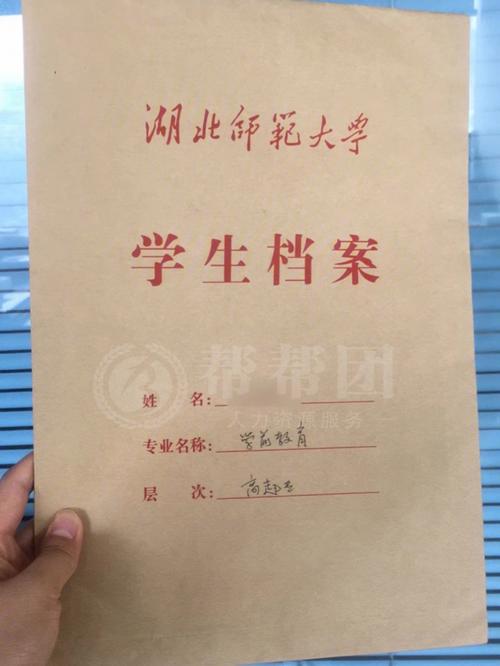 湖北师范大学
学生档案
帮帮团
姓 名:
人力资源服务
专业名称: 学前教育
层 次: 高起专